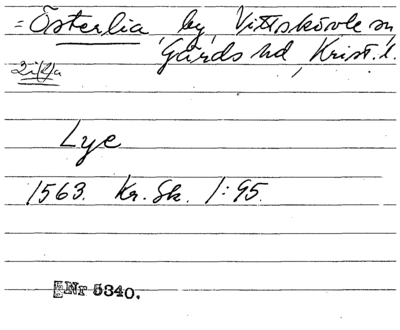 = Österlia, by, Vittskövle sn,
Gärds hd, Krist. l.
Lye
1563. Kr. Sk. 1:95.
Nr 5340.